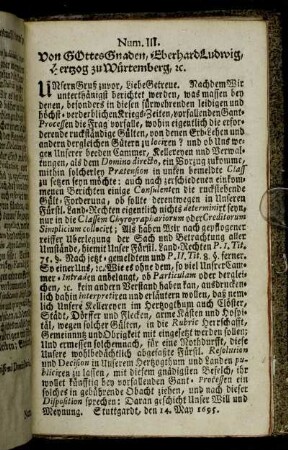 Num. III.
Von GOttes Gnaden, Eberhard Ludwig,
Hertzog zu Würtemberg, ꝛc.
UNsern Gruß zuvor, Liebe Getreue. Nachdem Wir
unterthänigst berichtet werden, was massen bey
denen, besonders in diesen fürwehrenden leidigen und
höchst-verderblichen Kriegs-Zeiten, vorfallenden Gant-
Processen die Frag vorfalle, wohin eigentlich die erfor-
derende ruckständige Gülten, von denen Erb-Lehen und
andern dergleichen Gütern zu lociren? und ob Unsert-
wegen Unserer beeden Cammer, Kellereyen und Verwal-
tungen, als dem Domino directo, ein Vorzug zukomme,
mithin solcherley Prætension in unken bemeldte Class
zu setzen seyn möchte: auch nach zerschiedenen einkom-
menen Berichten einige Consulenten die ruckstehende
Gült-Forderung, ob sollte derentwegen in Unseren
Fürstl. Land-Rechten eigentlich nichts determinirt seyn,
nur in die Classem Chyrographariorum oder Creditorum
Simplicium collocirt; Als haben Wir nach gepflogener
reiffer Uberlegung der Sach und Betrachtung aller
Umständ, hiemit Unser Fürstl. Land-Rechten P. I. Tit.
75. §. Nach jetzt-gemeldtem und P. II. Tit. 8. §. ferner.
So einer Uns/ ꝛc. Wie es ohne dem, so viel Unser Cam-
mer-Intraden anbelangt, ob Particulam oder derglei-
chen, ꝛc. kein andern Verstand haben kan, ausdrucken-
lich dahin interpretiren und erläutern wollen, daß nem-
lich Unsere Kellereyen im Hertzogthum auch Clöster,
Städt, Dörffer und Flecken, arme Kasten und Hospi-
täl, wegen solcher Gülten, in die Rubric Herrschafft,
Gemeinund und Obrigkeit mit eingesetzt werden sollen;
Und ermessen solchemnach, für eine Nothdurfft, diese
Unsere wohlbedächtlich abgefaßte Fürstl. Resolution
und Decision in Unserem Hertzogthum und Landen pu-
bliciren zu lassen, mit diesem gnädigsten Befelch, ihr
wollet künfftig bey vorfallenden Gant-Processen ein
solches in gebührende Obacht ziehen, und nach dieser
Disposition sprechen; Daran geschicht Unser Will und
Meynung. Stuttgardt, den 14. May 1695.